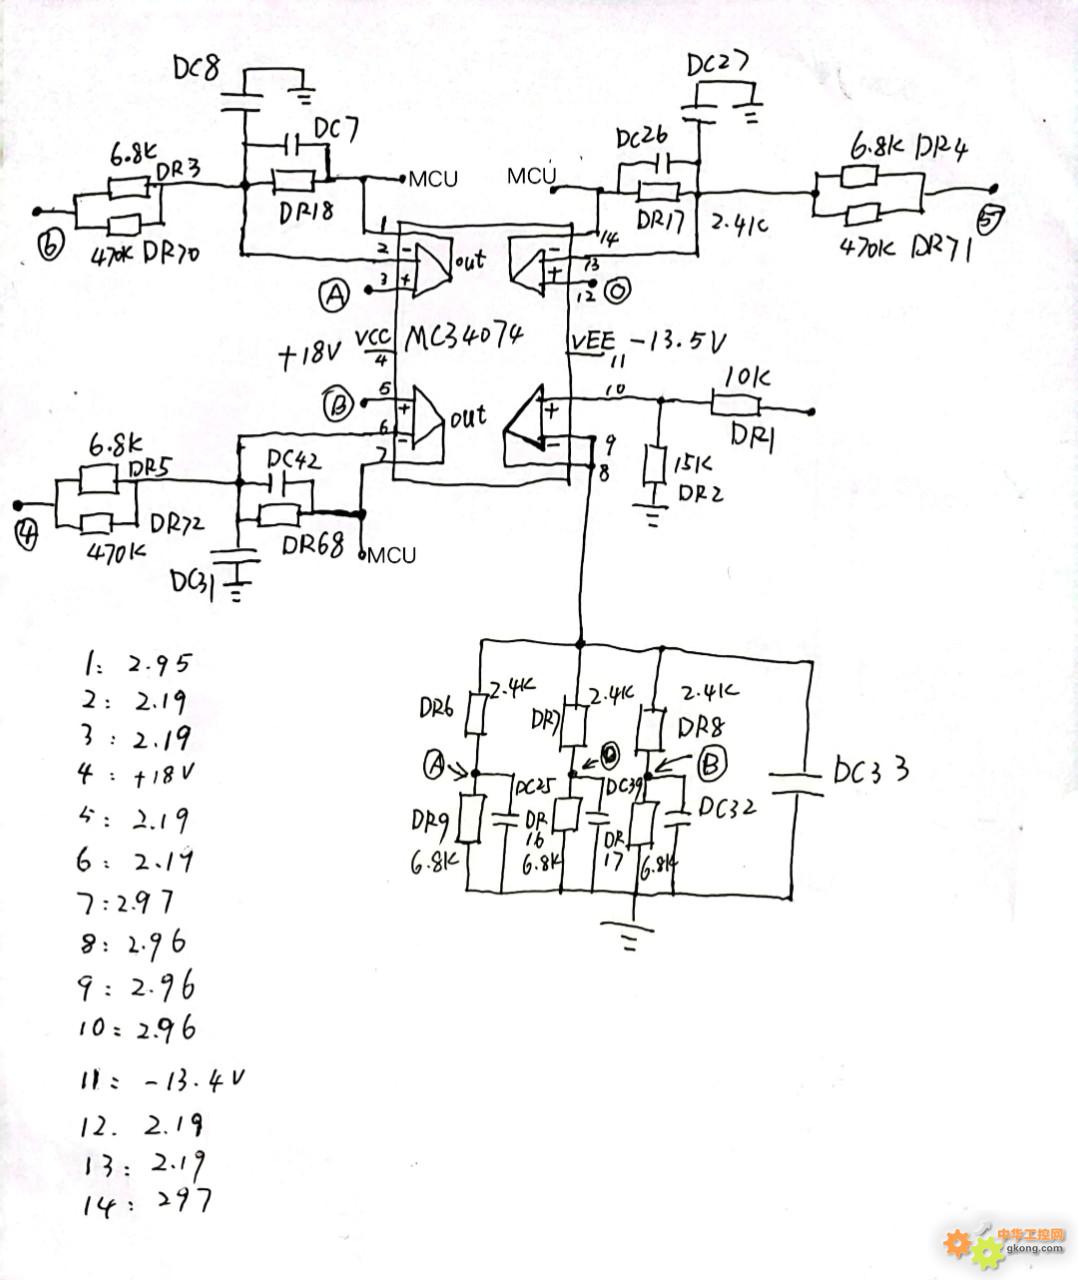 DC8
DC7
6.8K
DR3
MCU
DR18
470K DR70
⑥
DC27
DC26
MCU
6.8K DR4
DR17
2.41K
470K DR71
⑤
1
2
3
-
+
out
Ⓐ
14
13
12
-
+
+18V
VCC
4
MC34074
VEE
11
-13.5V
Ⓑ
5
6
7
+
-
out
10
9
8
+
-
10K
DR1
15K
DR2
6.8K
DR5
DC42
DR72
470K
DR68
④
DC31
MCU
DR6
2.41K
DR7
2.41K
2.41K
DR8
Ⓐ
Ⓑ
DC25
DC39
DC32
DC33
DR9
6.8K
DR
16
6.8K
DR
17
6.8K
1: 2.95
2: 2.19
3: 2.19
4: +18V
5: 2.19
6: 2.19
7: 2.97
8: 2.96
9: 2.96
10: 2.96
11: -13.4V
12. 2.19
13: 2.19
14: 297
中华工控网
gkong.com